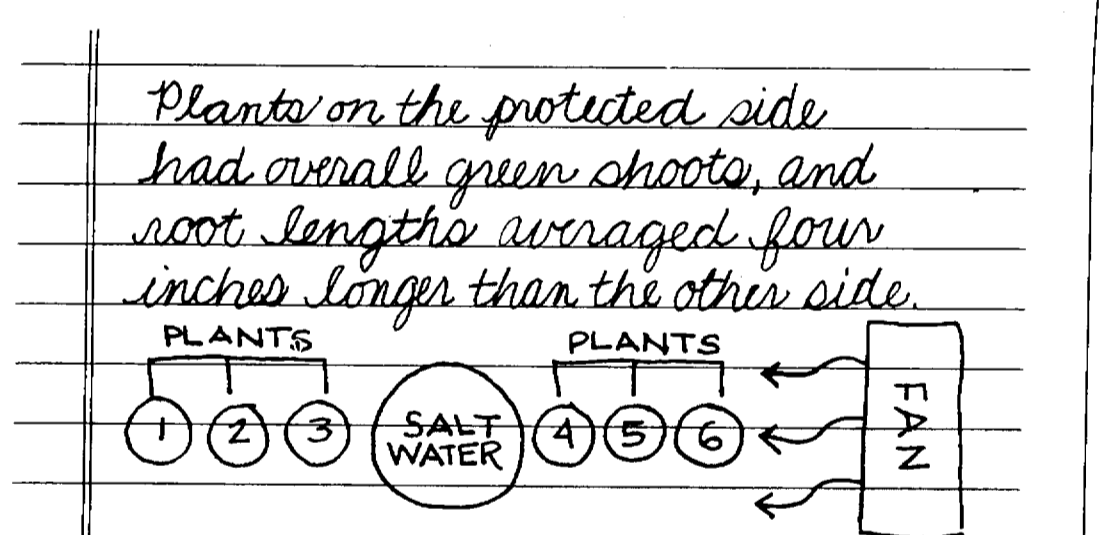 Plants on the protected side
had overall green shoots, and
root lengths averaged four
inches longer than the other side.
PLANTS PLANTS
1 2 3 SALT WATER 4 5 6 FAN